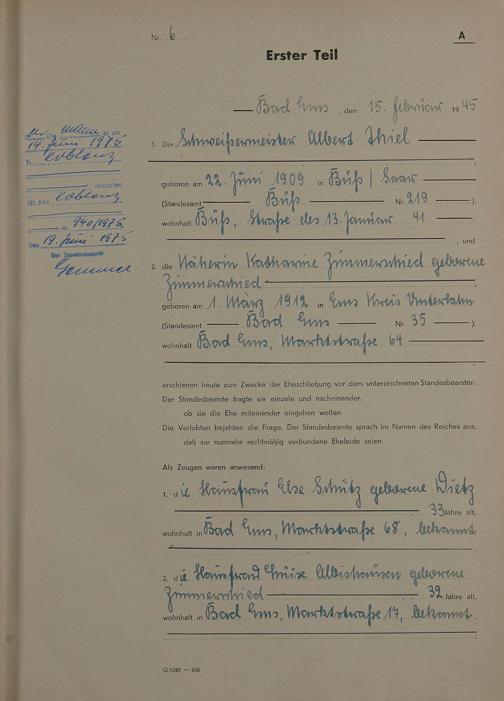 Nr. 6
A
Erster Teil
Bad Ems, den 15. Februar 1945
1. Der Schweißermeister Albert Thiel
geboren am 22. Juni 1909 in Büß / Saar
(Standesamt Büß Nr. 219).
wohnhaft Büß, Straße des 13. Januar 41
, und
2. die Näherin Katharine Zimmerschied geborene
Zimmerschied
geboren am 1. März 1912 in Ems Kreis Unterlahn
(Standesamt Bad Ems Nr. 35).
wohnhaft Bad Ems, Marktstraße 64
erschienen heute zum Zwecke der Eheschließung vor dem unterzeichneten Standesbeamten.
Der Standesbeamte fragte sie einzeln und nacheinander,
ob sie die Ehe miteinander eingehen wollen.
Die Verlobten bejahten die Frage. Der Standesbeamte sprach im Namen des Reiches aus,
daß sie nunmehr rechtmäßig verbundene Eheleute seien.
Als Zeugen waren anwesend:
1. die Hausfrau Else Schütz geborene Dietz
33 Jahre alt,
wohnhaft in Bad Ems, Marktstraße 68, bekannt
2. die Hausfrau Luise Albishausen geborene
Zimmerschied 32 Jahre alt,
wohnhaft in Bad Ems, Marktstraße 17, bekannt.
Der Ehemann ist am
14. Juni 1975
in Koblenz
verstorben
Koblenz
Nr. 940/1975
19. Juni 1975
Der Standesbeamte